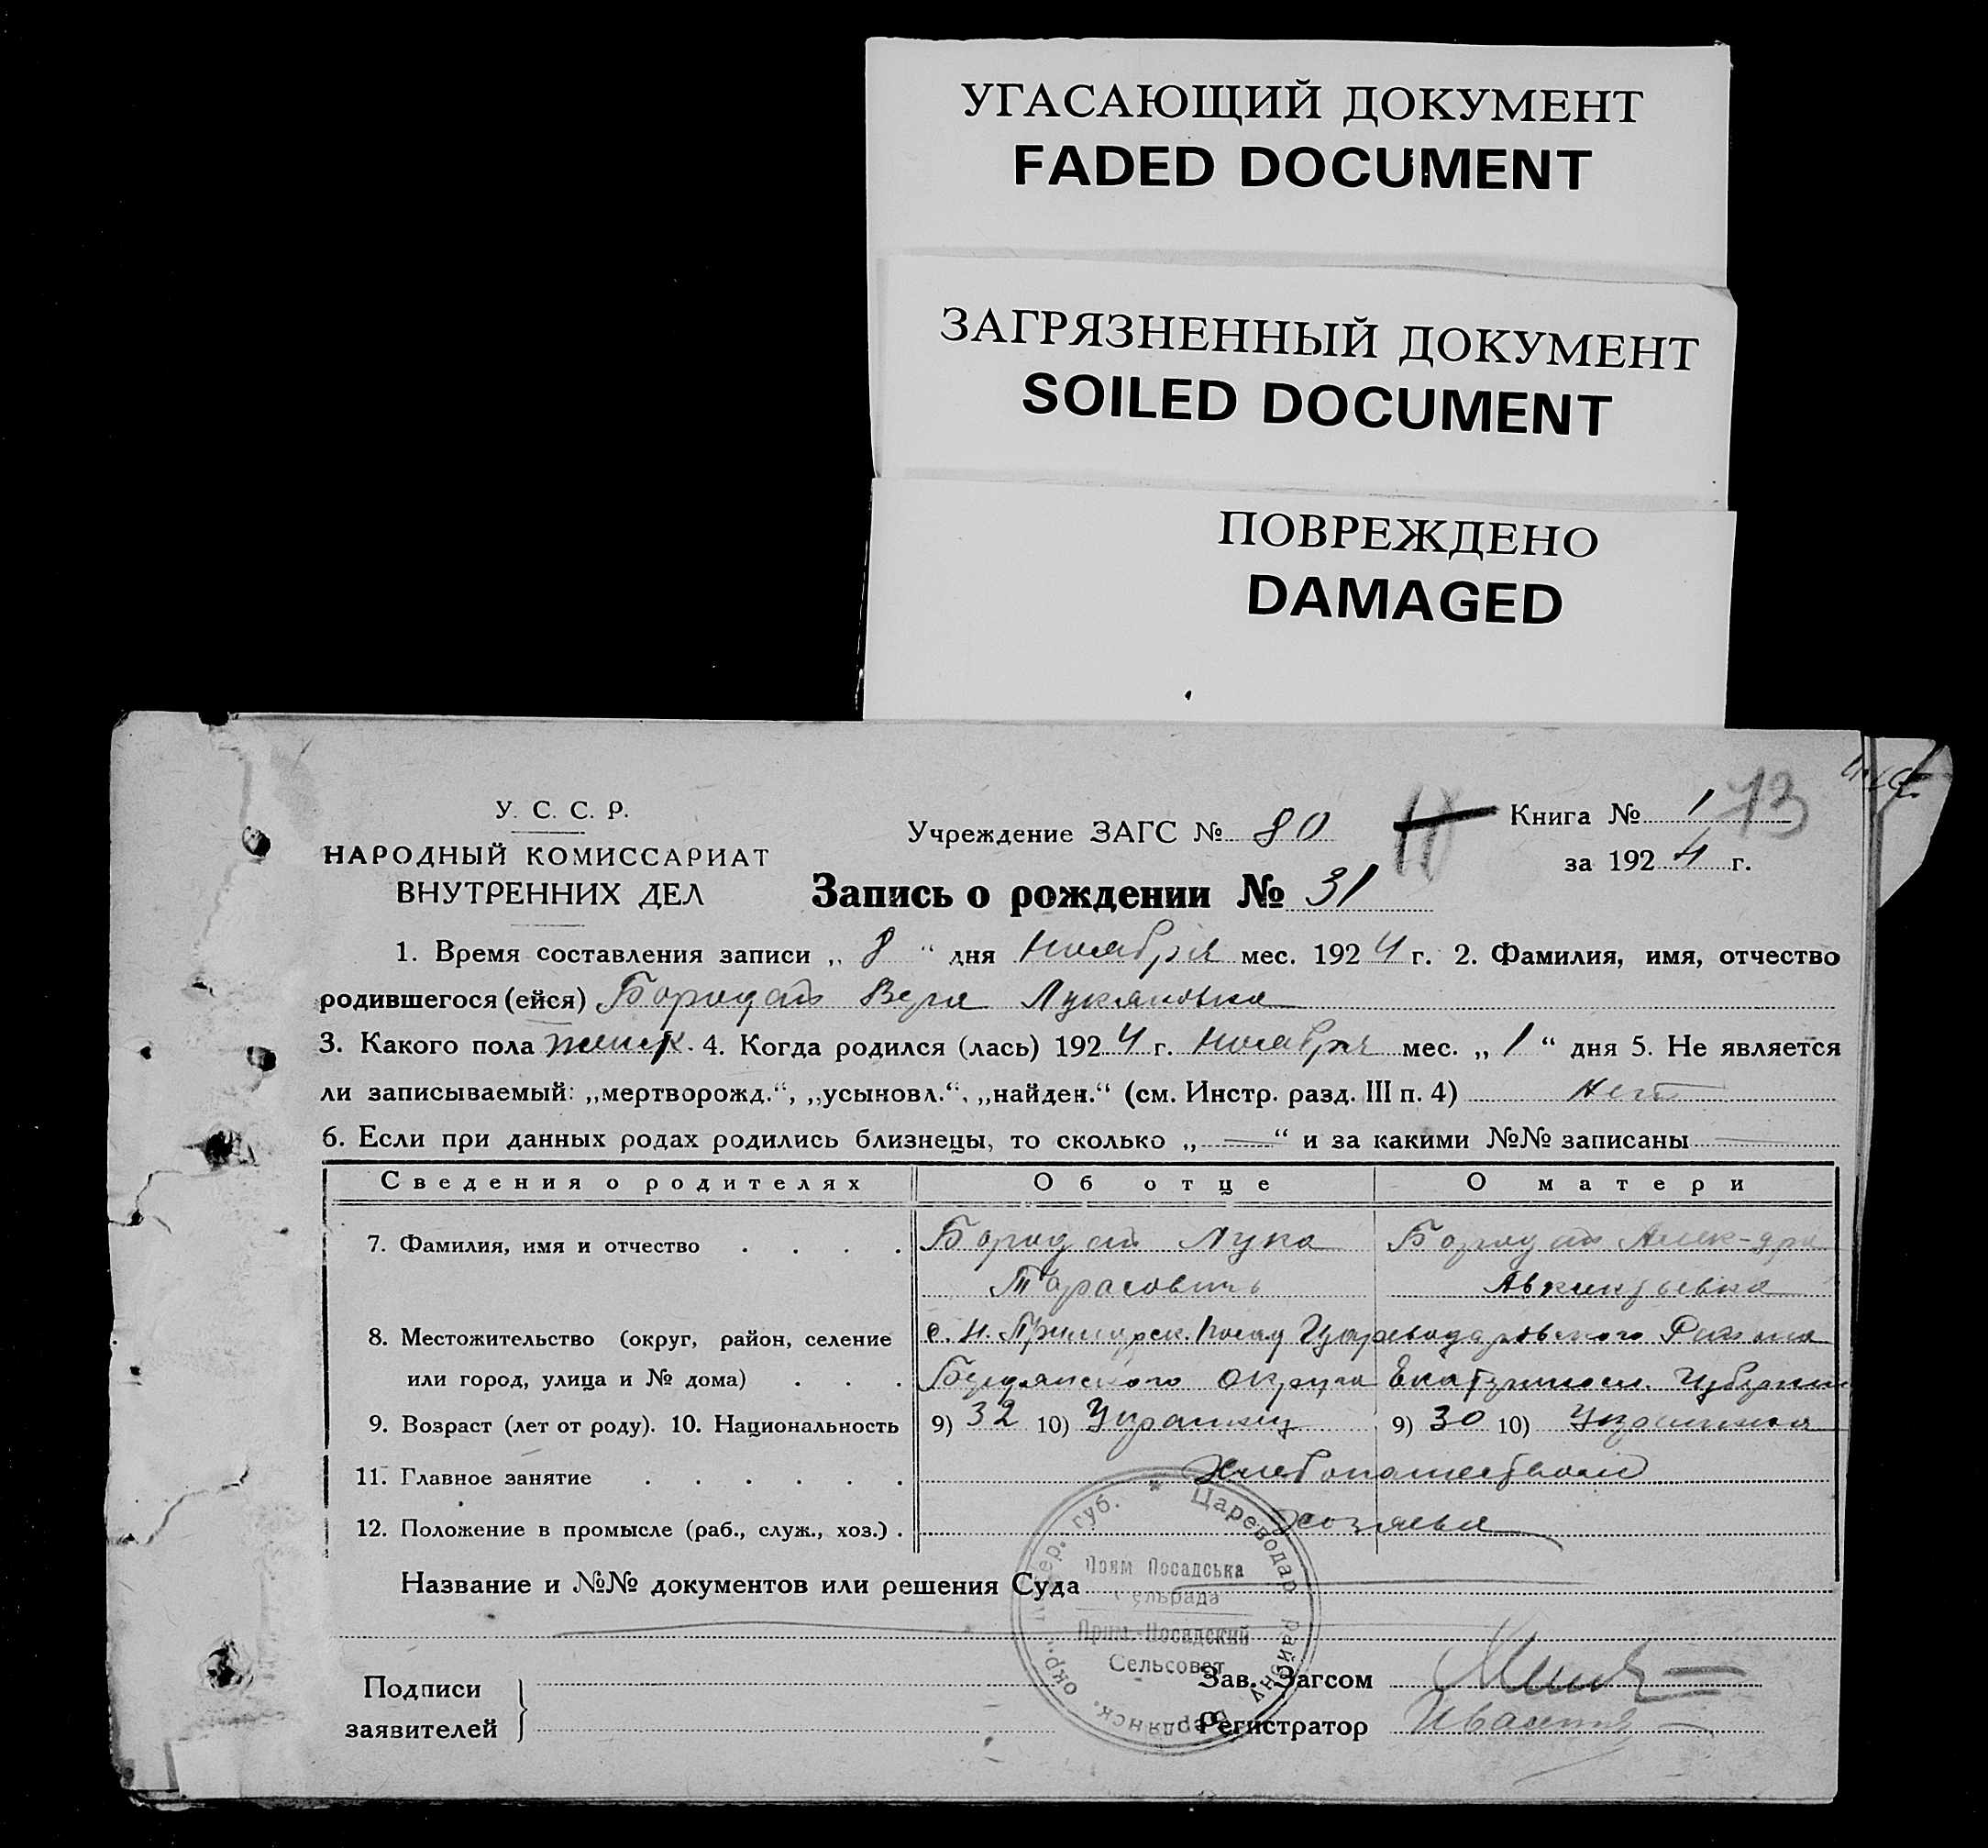 УГАСАЮЩИЙ ДОКУМЕНТ
FADED DOCUMENT
ЗАГРЯЗНЕННЫЙ ДОКУМЕНТ
SOILED DOCUMENT
ПОВРЕЖДЕНО
DAMAGED
У. С. С. Р.
НАРОДНЫЙ КОМИССАРИАТ
ВНУТРЕННИХ ДЕЛ
Учреждение ЗАГС № 80
Книга № 1 73
за 1924 г.
Запись о рождении № 31
1. Время составления записи „ 8 “ дня Ноября мес. 1924 г. 2. Фамилия, имя, отчество
родившегося (ейся) Бородат Вера Лукановна
3. Какого пола женск. 4. Когда родился (лась) 1924 г. Ноября мес. „ 1 “ дня 5. Не является
ли записываемый: „мертворожд.“, „усыновл.“, „найден.“ (см. Инстр. разд. III п. 4) нет
6. Если при данных родах родились близнецы, то сколько „ — “ и за какими №№ записаны —
Сведения о родителях Об отце О матери
7. Фамилия, имя и отчество . . . . Бородат Лука Бородат Алек-дра
Тарасовичь
8. Местожительство (округ, район, селение с. Н. Посад Цареводаровского Района
или город, улица и № дома) . . . Бердянского Округа Екатериносл. Губернии
9. Возраст (лет от роду). 10. Национальность 9) 32 10) Украинец 9) 30 10) Украинка
11. Главное занятие . . . . . . Хлебопашеством
12. Положение в промысле (раб., служ., хоз.) . хозяева
Название и №№ документов или решения Суда
* Цареводар. району Бердянск. окр. губ.
Прим Посадська
Сельрада
Прим.-Посадский
Сельсовет
Подписи
заявителей
Зав. Загсом
Регистратор